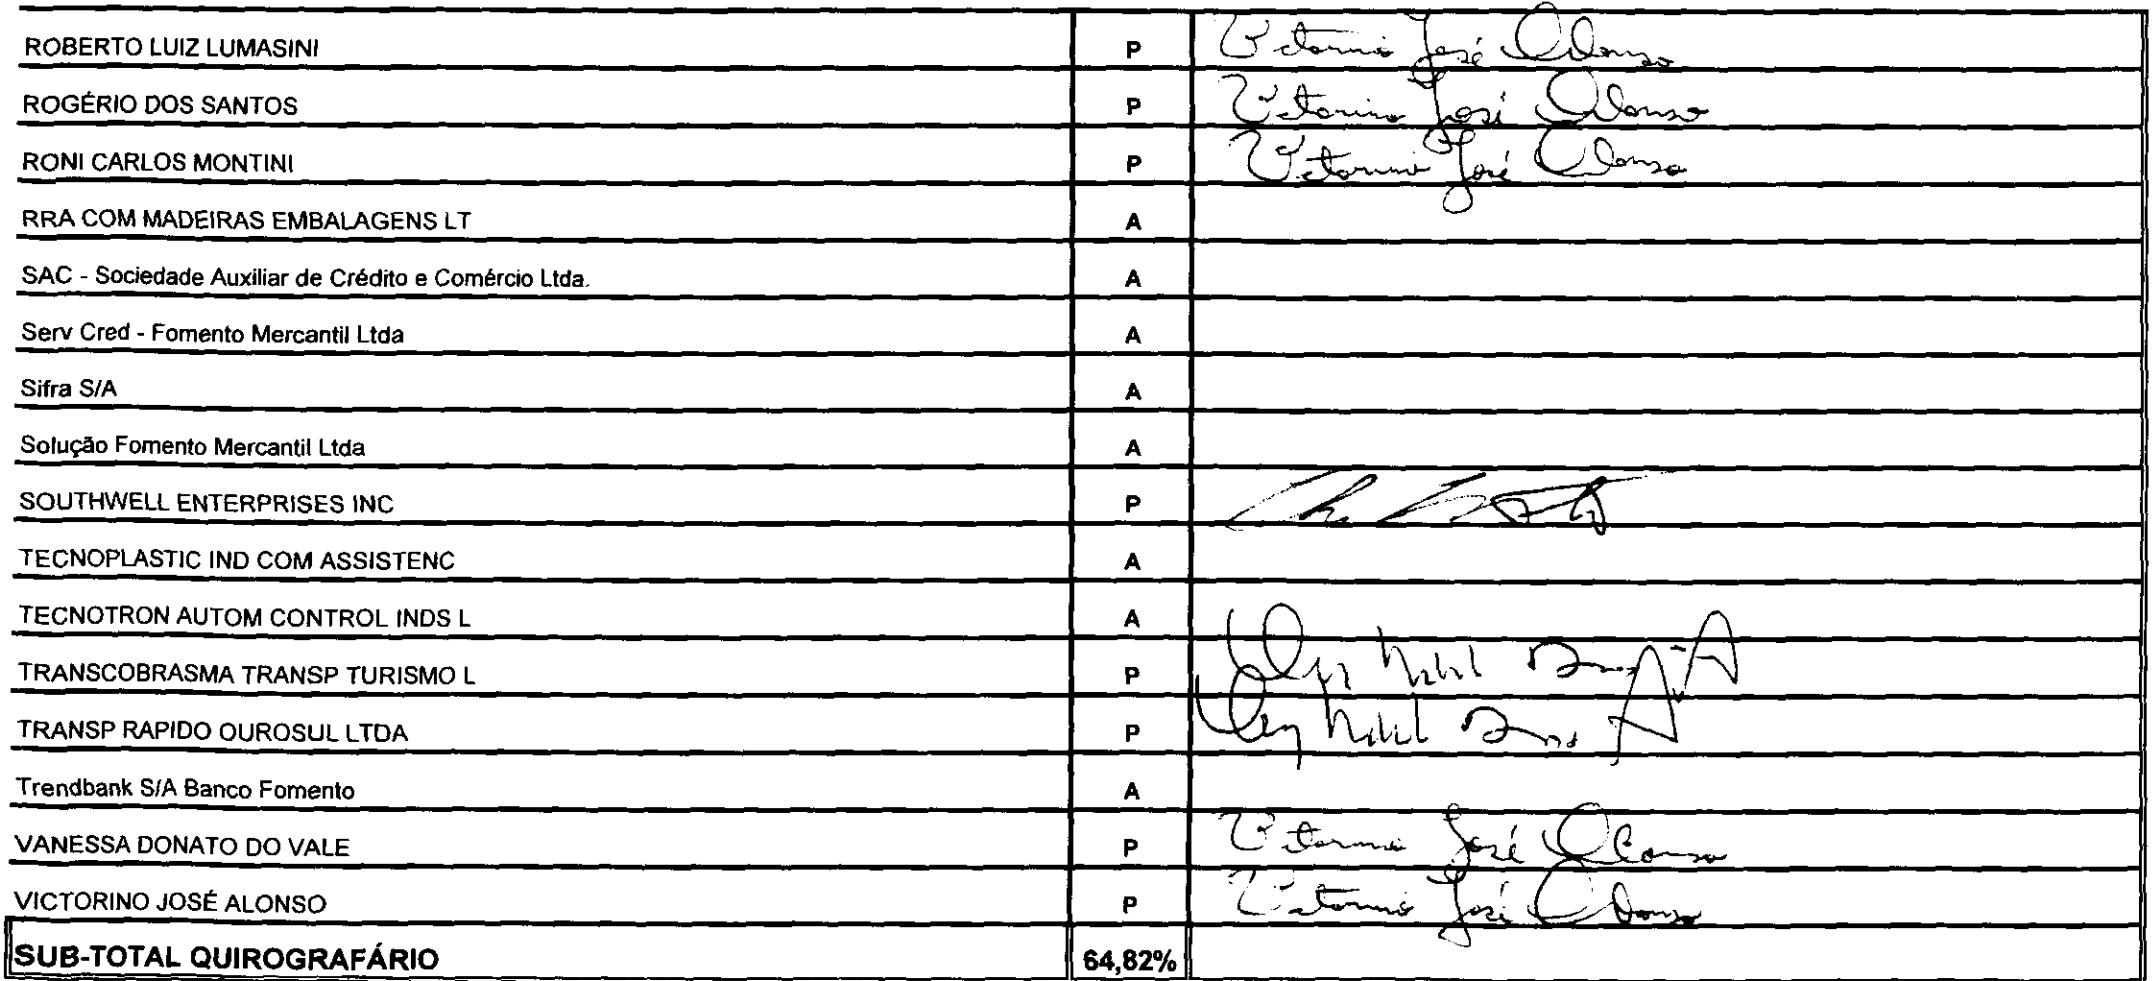 ROBERTO LUIZ LUMASINI P Victorino José Alonso
ROGÉRIO DOS SANTOS P Victorino José Alonso
RONI CARLOS MONTINI P Victorino José Alonso
RRA COM MADEIRAS EMBALAGENS LT A
SAC - Sociedade Auxiliar de Crédito e Comércio Ltda. A
Serv Cred - Fomento Mercantil Ltda A
Sifra S/A A
Solução Fomento Mercantil Ltda A
SOUTHWELL ENTERPRISES INC P
TECNOPLASTIC IND COM ASSISTENC A
TECNOTRON AUTOM CONTROL INDS L A
TRANSCOBRASMA TRANSP TURISMO L P
TRANSP RAPIDO OUROSUL LTDA P
Trendbank S/A Banco Fomento A
VANESSA DONATO DO VALE P Victorino José Alonso
VICTORINO JOSÉ ALONSO P Victorino José Alonso
SUB-TOTAL QUIROGRAFÁRIO 64,82%